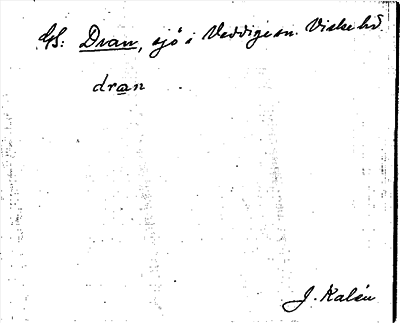 GS: Dran, sjö i Veddige sn. Viske hd.
dran
J. Kalén